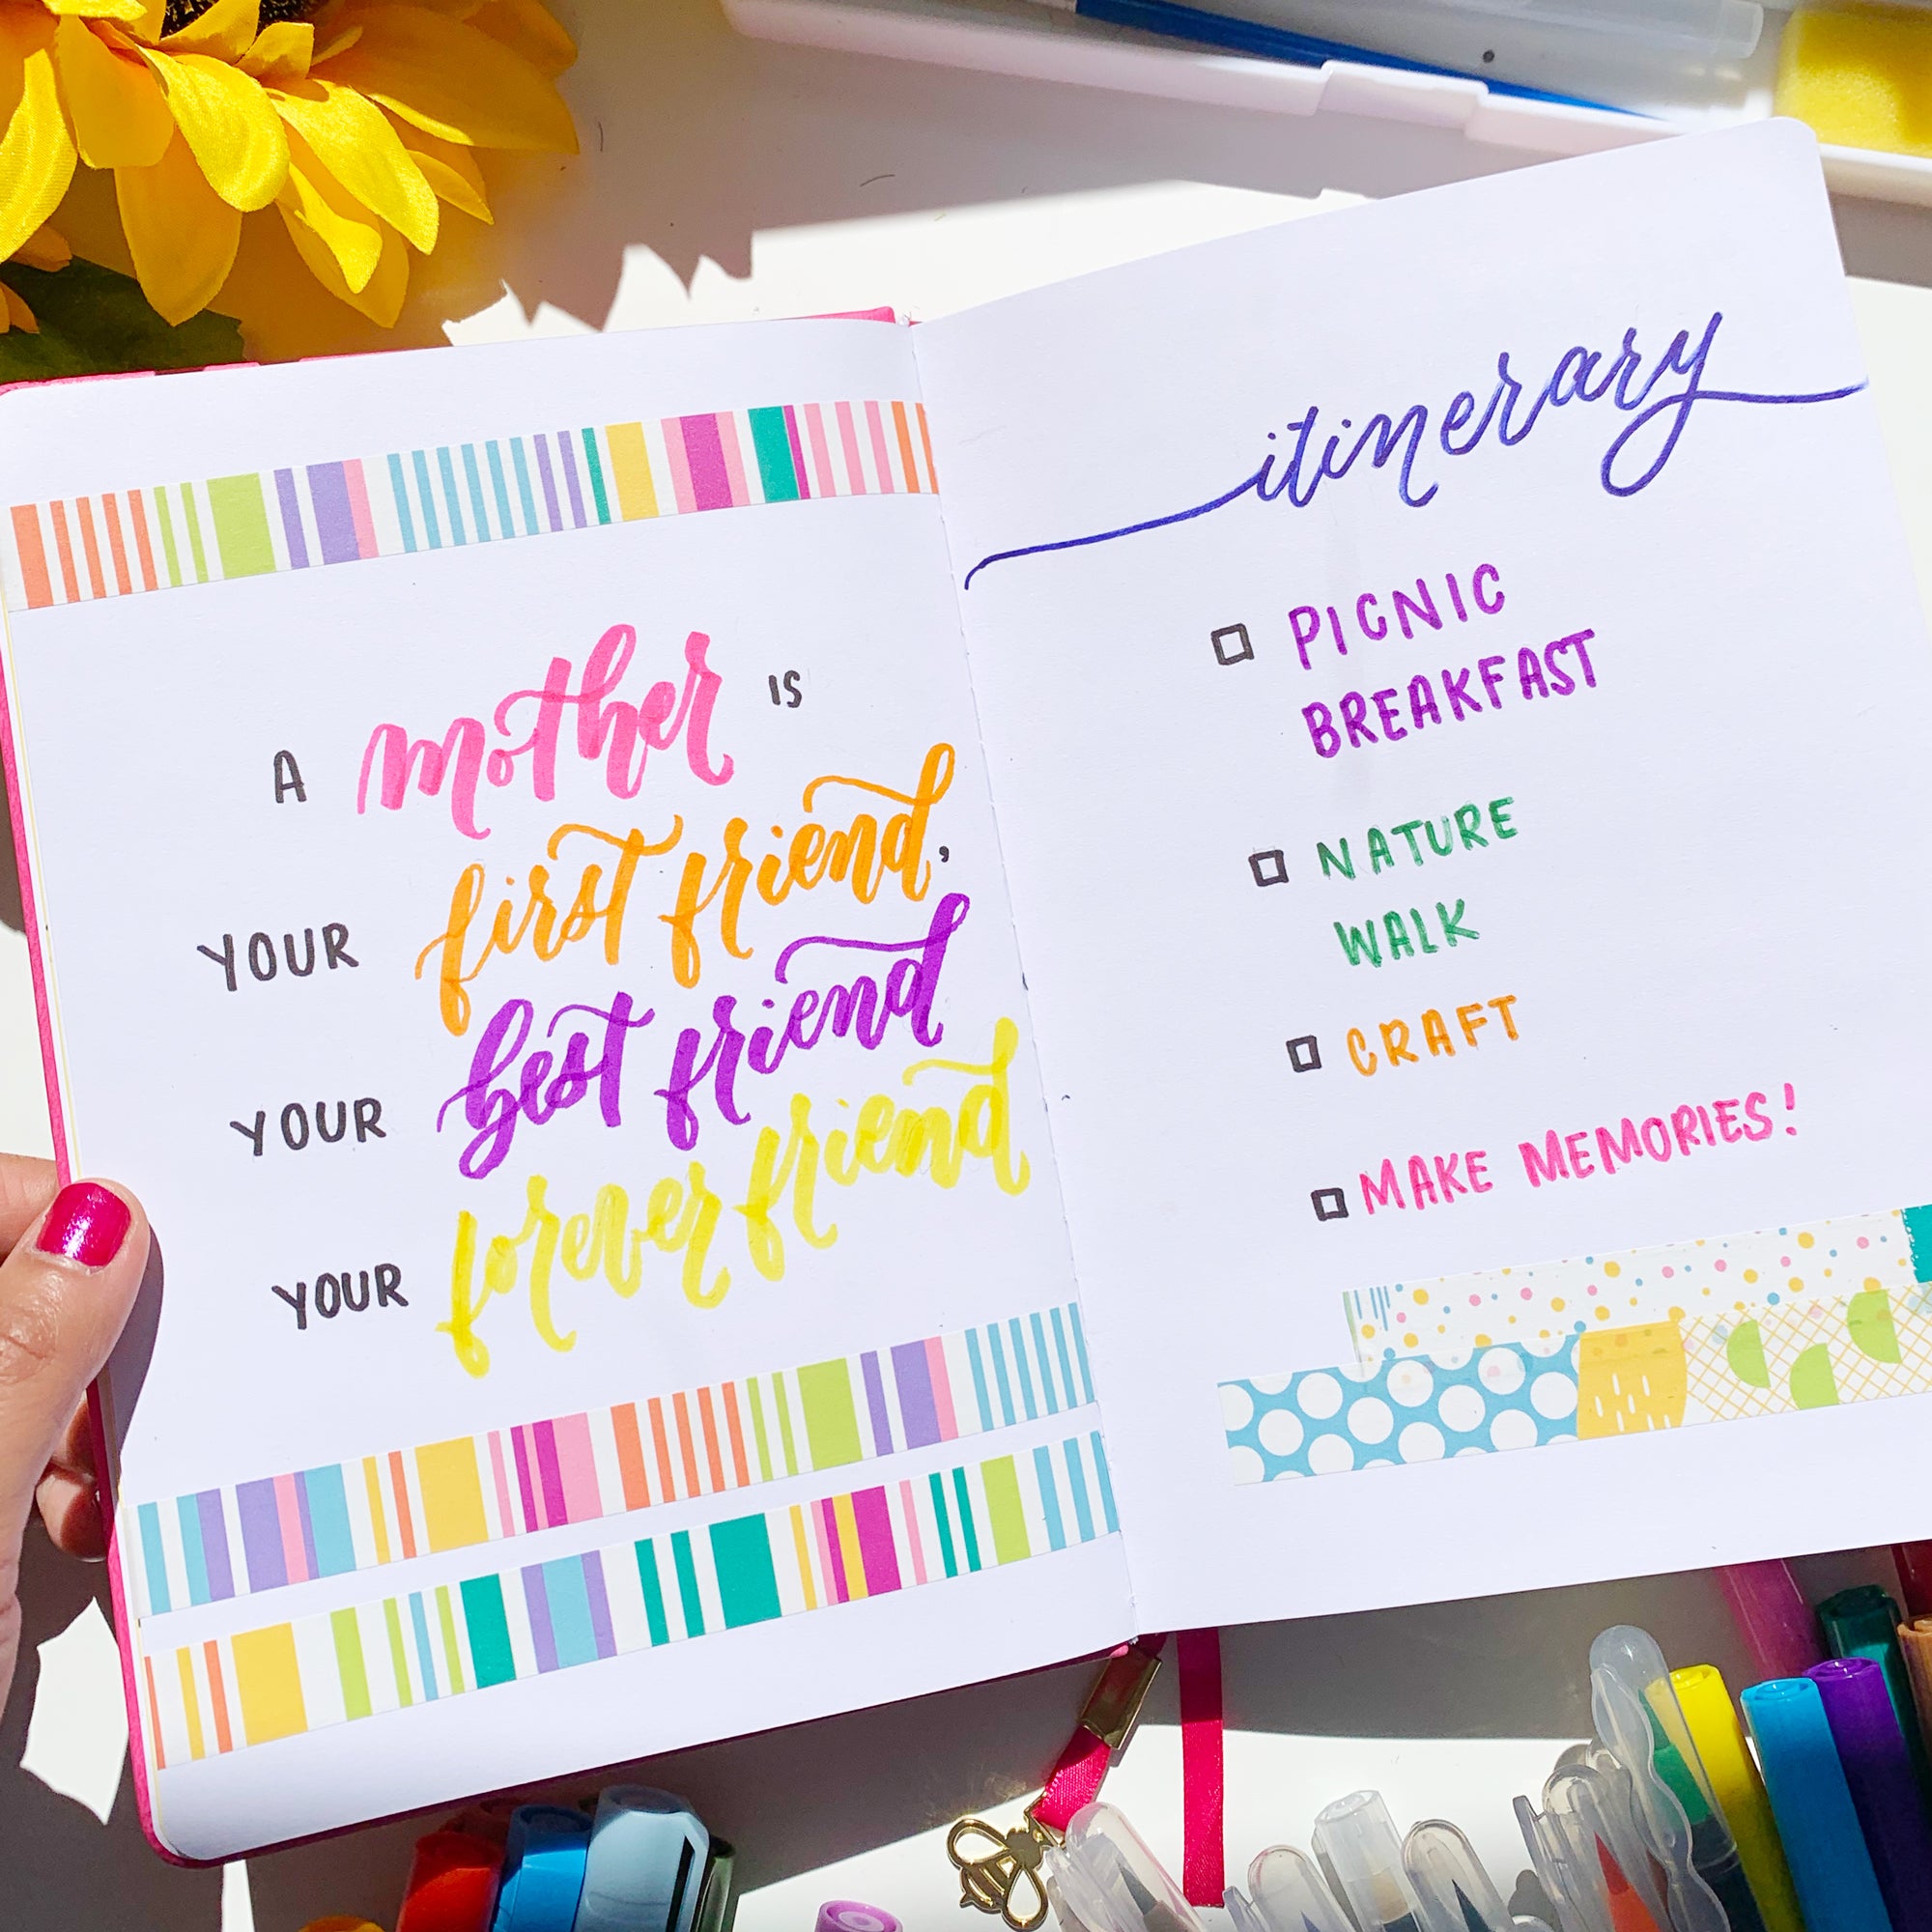 A mother IS
YOUR first friend,
YOUR best friend
YOUR forever friend
itinerary
PICNIC
BREAKFAST
NATURE
WALK
CRAFT
MAKE MEMORIES!